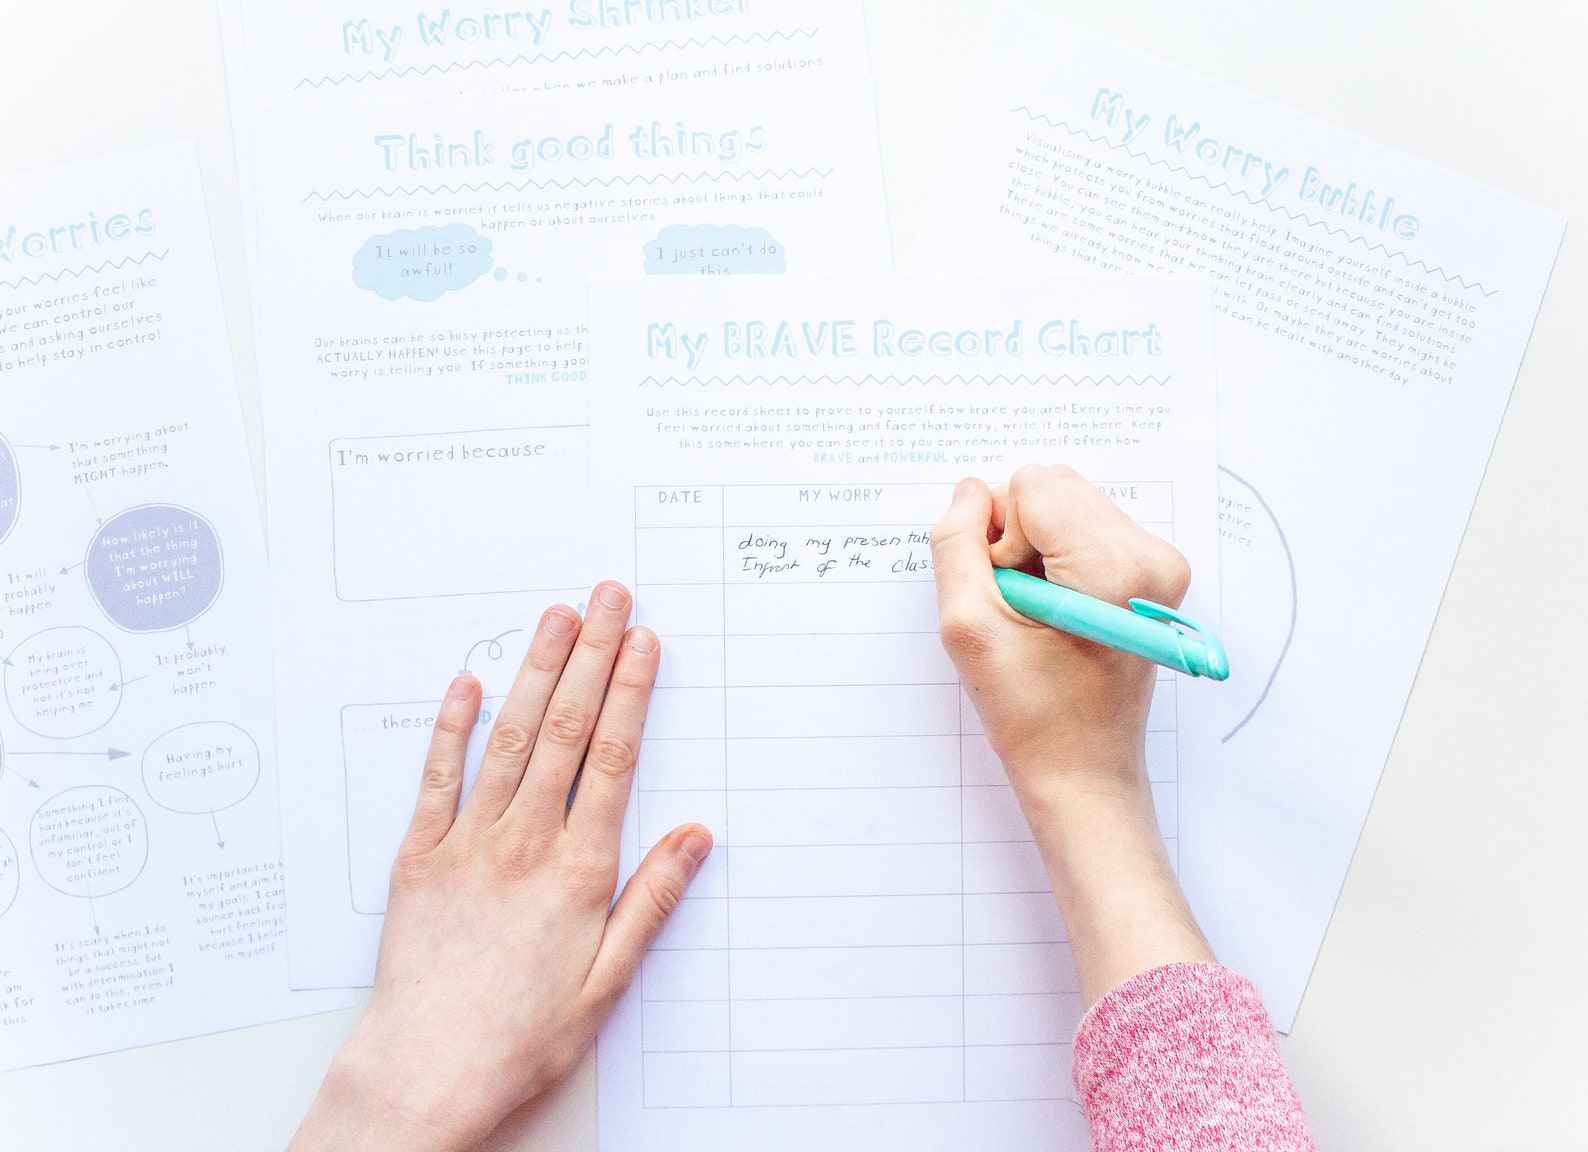 My Worry Shrinker
when we make a plan and find solutions
Think good things
When our brain is worried it tells us negative stories about things that could
happen or about ourselves
It will be so
awful!
I just can't do
this
Our brains can be so busy protecting us
ACTUALLY HAPPEN! Use this page to help
worry is telling you. If something
THINK GOOD
I'm worried because ...
... these
Worries
your worries feel like
We can control our
and asking ourselves
to help stay in control
I'm worrying about
that something
MIGHT happen.
How likely is it
that the thing
I'm worrying
about WILL
happen?
It will
probably
happen
My brain is
being over
protective and
not it's not
helping me
It probably
won't
happen
Having my
feelings hurt.
Something I find
hard because it's
unfamiliar, out of
my control or I
don't feel
confident.
It's important to
myself and aim
my goals. I can
bounce back
hurt feelings
because I
in myself.
It's scary when I do
things that might not
be a success. But
with determination I
can do this, even if
it takes time.
am
for
this
My Worry Bubble
Visualising a worry bubble can really help. Imagine yourself inside a bubble
which protects you from worries that float around outside and can't get too
close. You can see them and know they are there but because you are inside
the bubble, you can hear your thinking brain clearly and can find solutions
There are some worries that we can let pass or send away. They might be
things we already know we with. Or maybe they are worries about
things that are and can be dealt with another day
My BRAVE Record Chart
Use this record sheet to prove to yourself how brave you are! Every time you
feel worried about something and face that worry, write it down here. Keep
this somewhere you can see it so you can remind yourself often how
BRAVE and POWERFUL you are
DATE MY WORRY
doing my presentati
Infront of the class